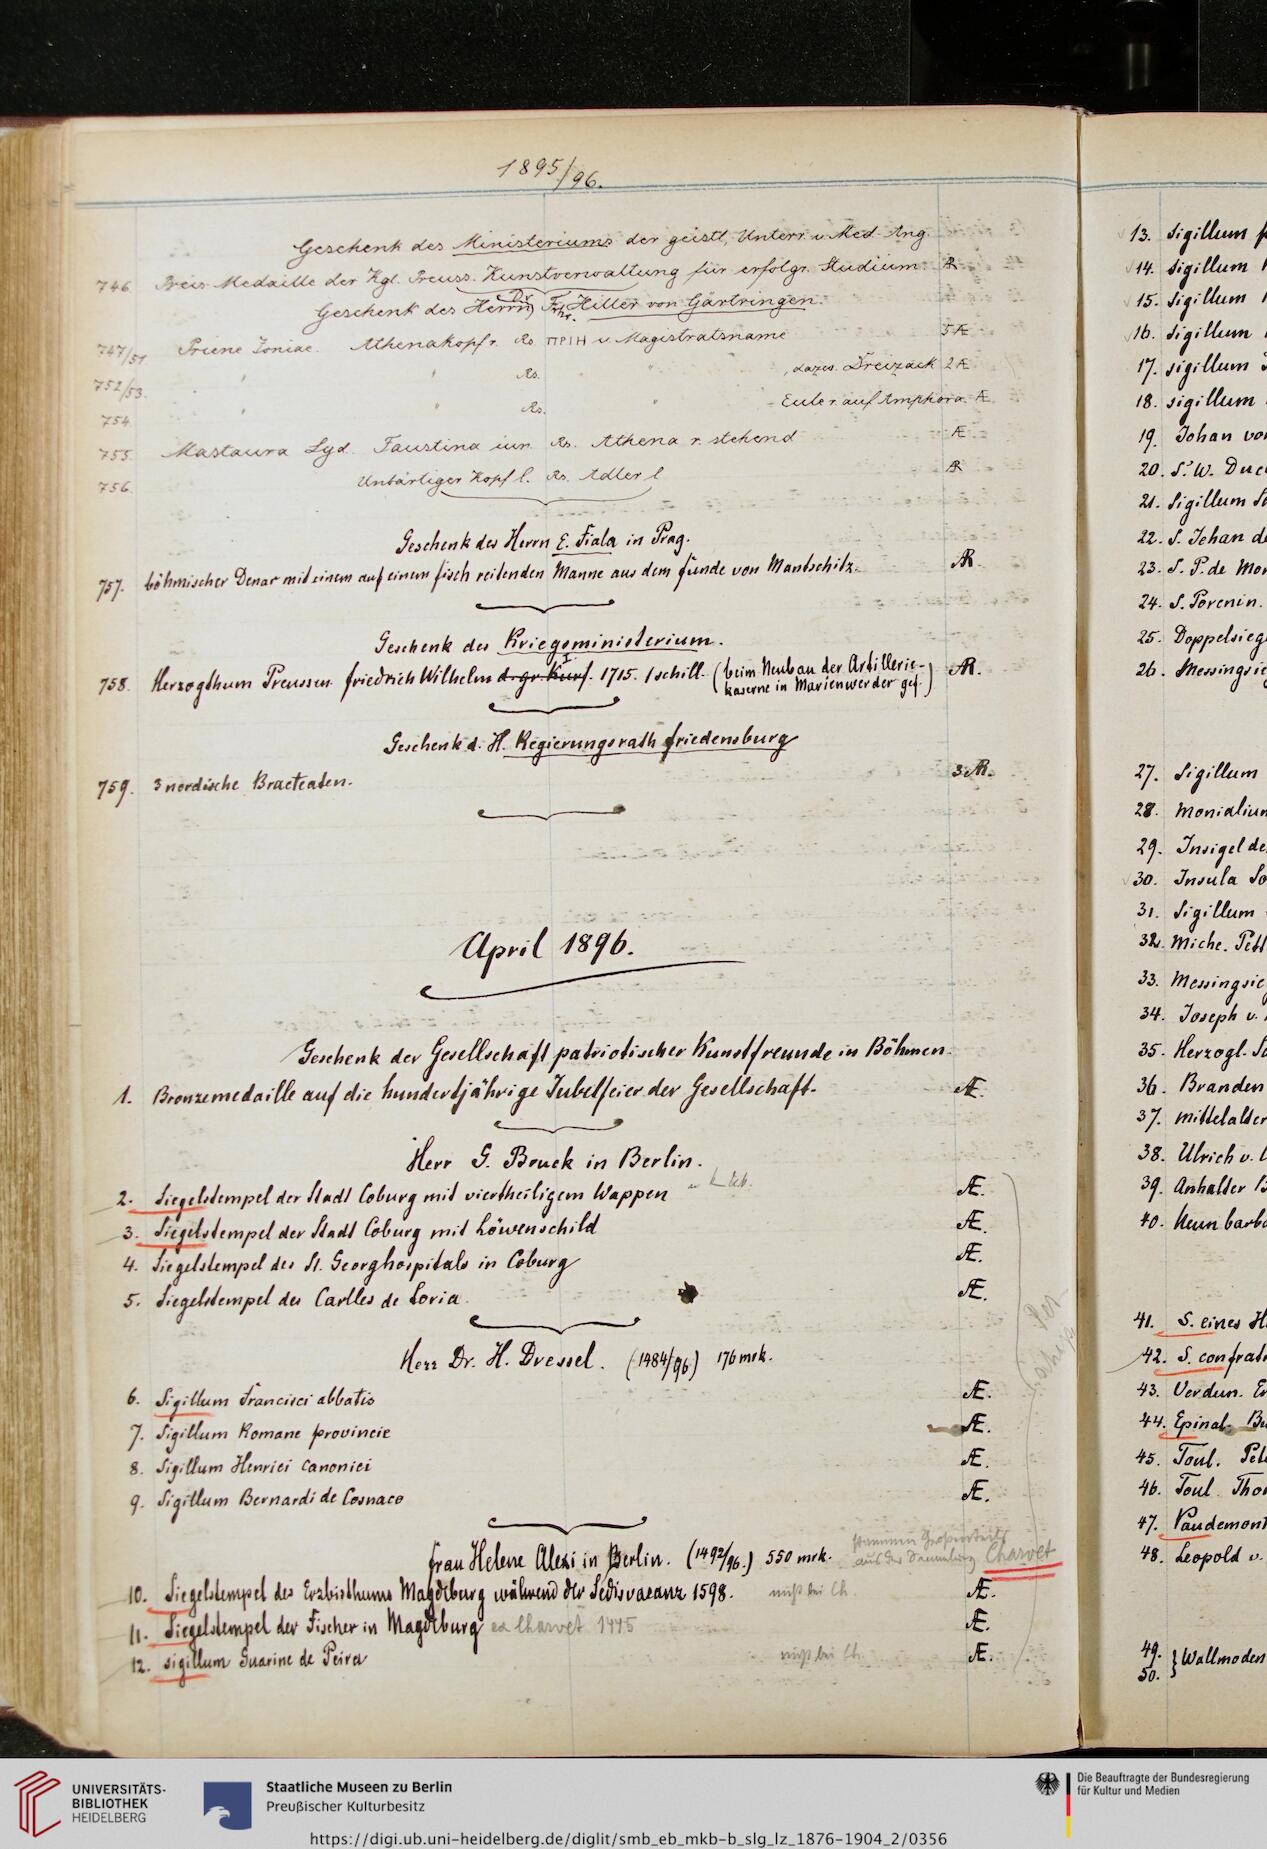 1895/96.
Geschenk des Ministeriums der geistl. Unterr. u. Med. Ang.
746. Preis Medaille der Kgl. Preuss. Kunstverwaltung für erfolgr. Studium AR
Geschenk des Herrn Dr Frhr. Hiller von Gärtringen.
747/51 Priene Ioniae. Athenakopf r. Rs. ΠΡΙΗ u. Magistratsname 5 Æ
752/53. " " Rs. " , dazw. Dreizack 2 Æ
754. " " Rs. " Eule r. auf Amphora Æ
755. Mastaura Lyd. Faustina iun. Rs. Athena r. stehend Æ
756. Unbärtiger Kopf l. Rs. Adler l AR
Geschenk des Herrn E. Fiala in Prag.
757. böhmischer Denar mit einem auf einem Fisch reitenden Manne aus dem Funde von Mantschitz. AR.
Geschenk des Kriegsministerium.
758. Herzogthum Preussen Friedrich Wilhelm I d. gr. Kurf. 1715. 1 schill. (beim Neubau der Artillerie- AR.
kaserne in Marienwerder gef.)
Geschenk d. H. Regierungsrath Friedensburg
759. 3 nordische Bracteaten. 3 AR.
April 1896.
Geschenk der Gesellschaft patriotischer Kunstfreunde in Böhmen.
1. Bronzemedaille auf die hundertjährige Jubelfeier der Gesellschaft. Æ.
Herr G. Bouck in Berlin.
2. Siegelstempel der Stadt Coburg mit viertheiligem Wappen Æ.
3. Siegelstempel der Stadt Coburg mit Löwenschild Æ.
4. Siegelstempel des St. Georghospitals in Coburg Æ.
5. Siegelstempel des Carlles de Loria. Æ.
Herr Dr. H. Dressel. (1484/96) 176 mrk.
6. Sigillum Francisci abbatis Æ.
7. Sigillum Romane provincie Æ.
8. Sigillum Henrici canonici Æ.
9. Sigillum Bernardi de Cosnaco Æ.
Frau Helene Alexi in Berlin. (1492/96.) 550 mrk. stammen Großenteils
aus der Sammlung Charvet
10. Siegelstempel des Erzbisthums Magdeburg während der Sedisvacanz 1598. nicht bei Ch. Æ.
11. Siegelstempel der Fischer in Magdeburg ex Charvet 1445 Æ.
12. sigillum Guarine de Peira nicht bei Ch. Æ.
13. Sigillum
14. Sigillum
15. Sigillum
16. Sigillum
17. sigillum
18. sigillum
19. Johan von
20. S. W. Duc
21. Sigillum
22. S. Jehan de
23. S. P. de
24. S. Porenin.
25. Doppelsieg
26. Messingsie
27. Sigillum
28. Monialium
29. Insigel de
30. Insula
31. Sigillum
32. Miche.
33. Messingsie
34. Joseph v.
35. Herzogl.
36. Branden
37. mittelalter
38. Ulrich v.
39. Anhalter
40. Neun barba
41. S. eines
42. S. confrat
43. Verdun.
44. Epinal.
45. Toul.
46. Toul
47. Vaudemont
48. Leopold v.
49.
50. } Wallmoden
UNIVERSITÄTS-
BIBLIOTHEK
HEIDELBERG
Staatliche Museen zu Berlin
Preußischer Kulturbesitz
Die Beauftragte der Bundesregierung
für Kultur und Medien
https://digi.ub.uni-heidelberg.de/diglit/smb_eb_mkb-b_slg_lz_1876-1904_2/0356